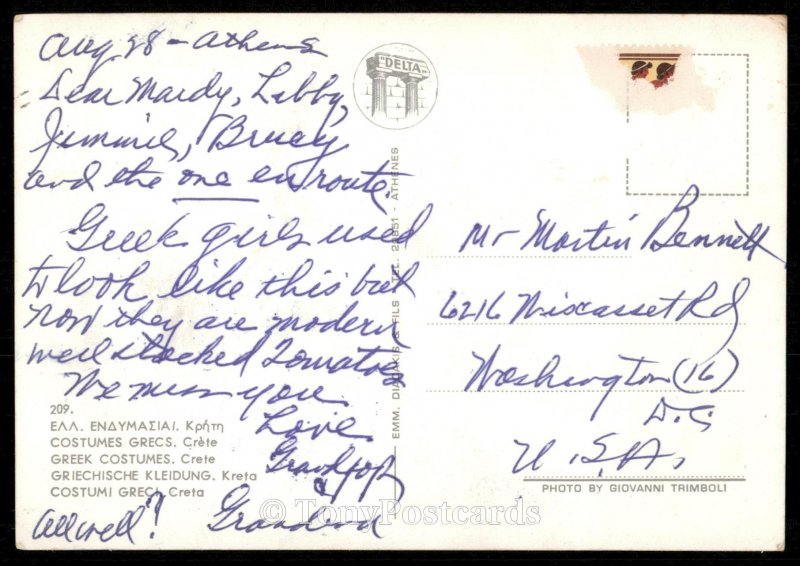 Aug 28 - Athens
Dear Mardy, Libby,
Jimmie, Brucy
and the one en route.
Greek girls used
to look like this but
now they are modern
well stacked Tomatoes
We miss you.
Love
Grandpop
&
Grandma
all well?
209.
ΕΛΛ. ΕΝΔΥΜΑΣΙΑΙ. Κρήτη
COSTUMES GRECS. Crète
GREEK COSTUMES. Crete
GRIECHISCHE KLEIDUNG. Kreta
COSTUMI GRECI. Creta
"DELTA"
EMM. DIAKAKIS & FILS - TEL. 22851 - ATHENES
Mr Martin Bennett
6216 Wiscasset Rd
Washington (16)
D.C.
U.S.A.
PHOTO BY GIOVANNI TRIMBOLI
© TonyPostcards